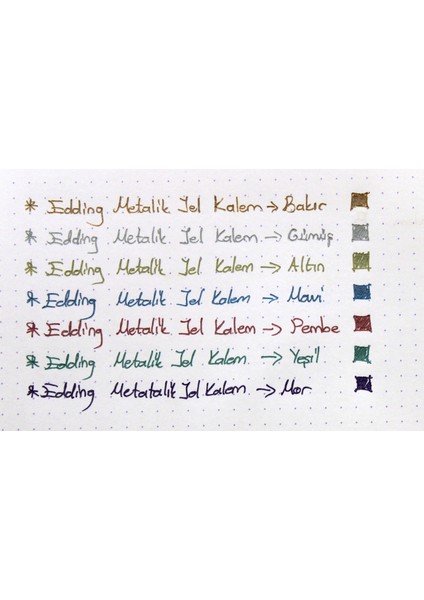 * Edding Metalik Jel Kalem → Bakır
* Edding Metalik Jel Kalem → Gümüş
* Edding Metalik Jel Kalem → Altın
* Edding Metalik Jel Kalem → Mavi
* Edding Metalik Jel Kalem → Pembe
* Edding Metalik Jel Kalem → Yeşil
* Edding Metatalik Jel Kalem → Mor